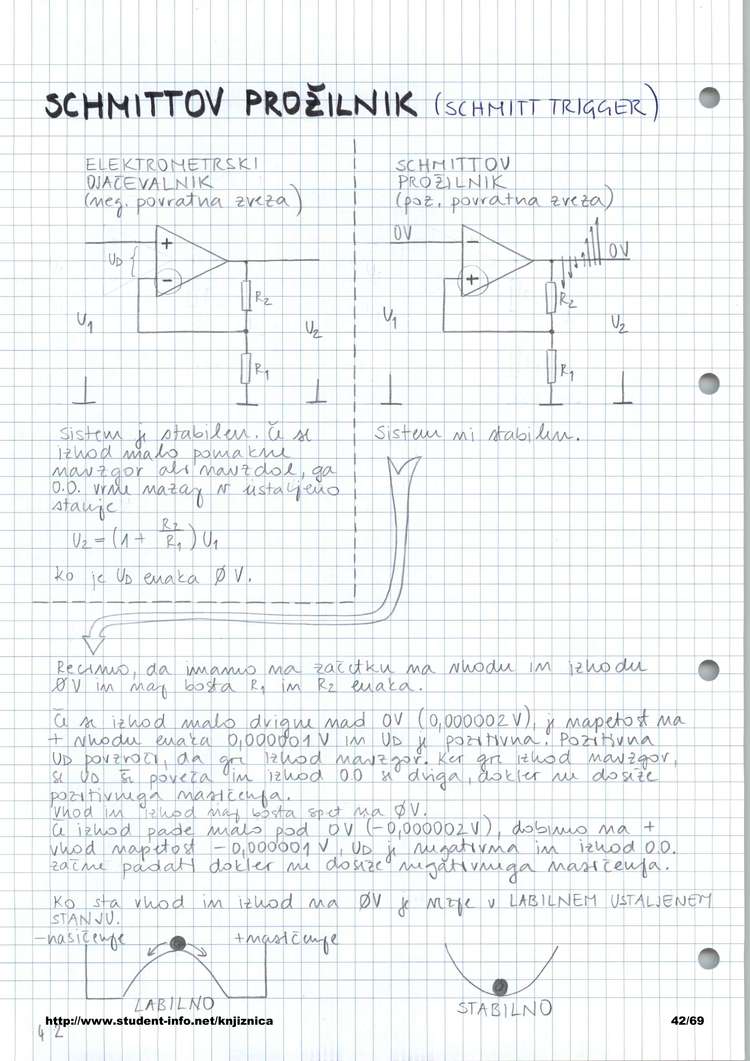 SCHMITTOV PROŽILNIK (SCHMITT TRIGGER)
ELEKTROMETRSKI
OJAČEVALNIK
(neg. povratna zveza)
+
UD
-
R2
U1
U2
R1
Sistem je stabilen. Če se
izhod malo pomakne
navzgor ali navzdol, ga
O.O. vrne nazaj v ustaljeno
stanje
U2 = (1 + R2/R1) U1
Ko je UD enaka Ø V.
SCHMITTOV
PROŽILNIK
(poz. povratna zveza)
0V
-
0V
+
R2
U1
U2
R1
Sistem ni stabilen.
Recimo, da imamo na začetku na vhodu in izhodu
ØV in naj bosta R1 in R2 enaka.
Če se izhod malo dvigne nad 0V (0,000002V), je napetost na
+ vhodu enaka 0,000001V in UD je pozitivna. Pozitivna
UD povzroči, da gre izhod navzgor. Ker gre izhod navzgor,
se UD še poveča in izhod O.O se dviga, dokler ne doseže
pozitivnega nasičenja.
Vhod in izhod naj bosta spet na ØV.
Če izhod pade malo pod 0V (-0,000002V), dobimo na +
vhod napetost -0,000001V, UD je negativna in izhod O.O.
začne padati dokler ne doseže negativnega nasičenja.
Ko sta vhod in izhod na ØV je vezje v LABILNEM USTALJENEM
STANJU.
-nasičenje
+nasičenje
LABILNO
STABILNO
http://www.student-info.net/knjiznica
42/69
42